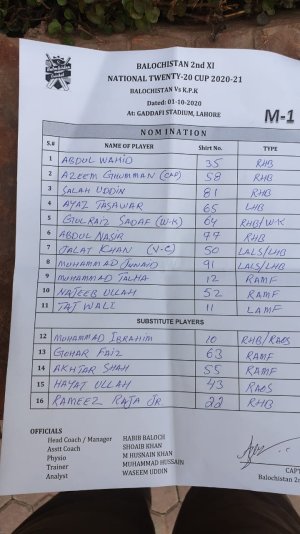 BALOCHISTAN 2nd XI
NATIONAL TWENTY-20 CUP 2020-21
BALOCHISTAN Vs K.P.K
Dated: 01-10-2020
At: GADDAFI STADIUM, LAHORE
M-1
NOMINATION
S.# NAME OF PLAYER Shirt No. TYPE
1 ABDUL WAHID 35 RHB
2 AZEEM GHUMMAN (CAP) 58 RHB
3 SALAH UDDIN 81 RHB
4 AYAZ TASAWAR 65 LHB
5 GULRAIZ SADAF (W.K) 64 RHB/WK
6 ABDUL NASIR 77 RHB
7 JALAT KHAN (V.C) 50 LALS/LHB
8 MUHAMMAD JUNAID 91 LALS/LHB
9 MUHAMMAD TALHA 12 RAMF
10 NAJEEB ULLAH 52 RAMF
11 TAJ WALI 11 LAMF
SUBSTITUTE PLAYERS
12 MUHAMMAD IBRAHIM 10 RHB/RAOS
13 GOHAR FAIZ 63 RAMF
14 AKHTAR SHAH 55 RAMF
15 HAYAT ULLAH 43 RAOS
16 RAMEEZ RAJA JR 22 RHB
OFFICIALS
Head Coach / Manager HABIB BALOCH
Asstt Coach SHOAIB KHAN
Physio M HUSNAIN KHAN
Trainer MUHAMMAD HUSSAIN
Analyst WASEEM UDDIN
CAPT
Balochistan 2n